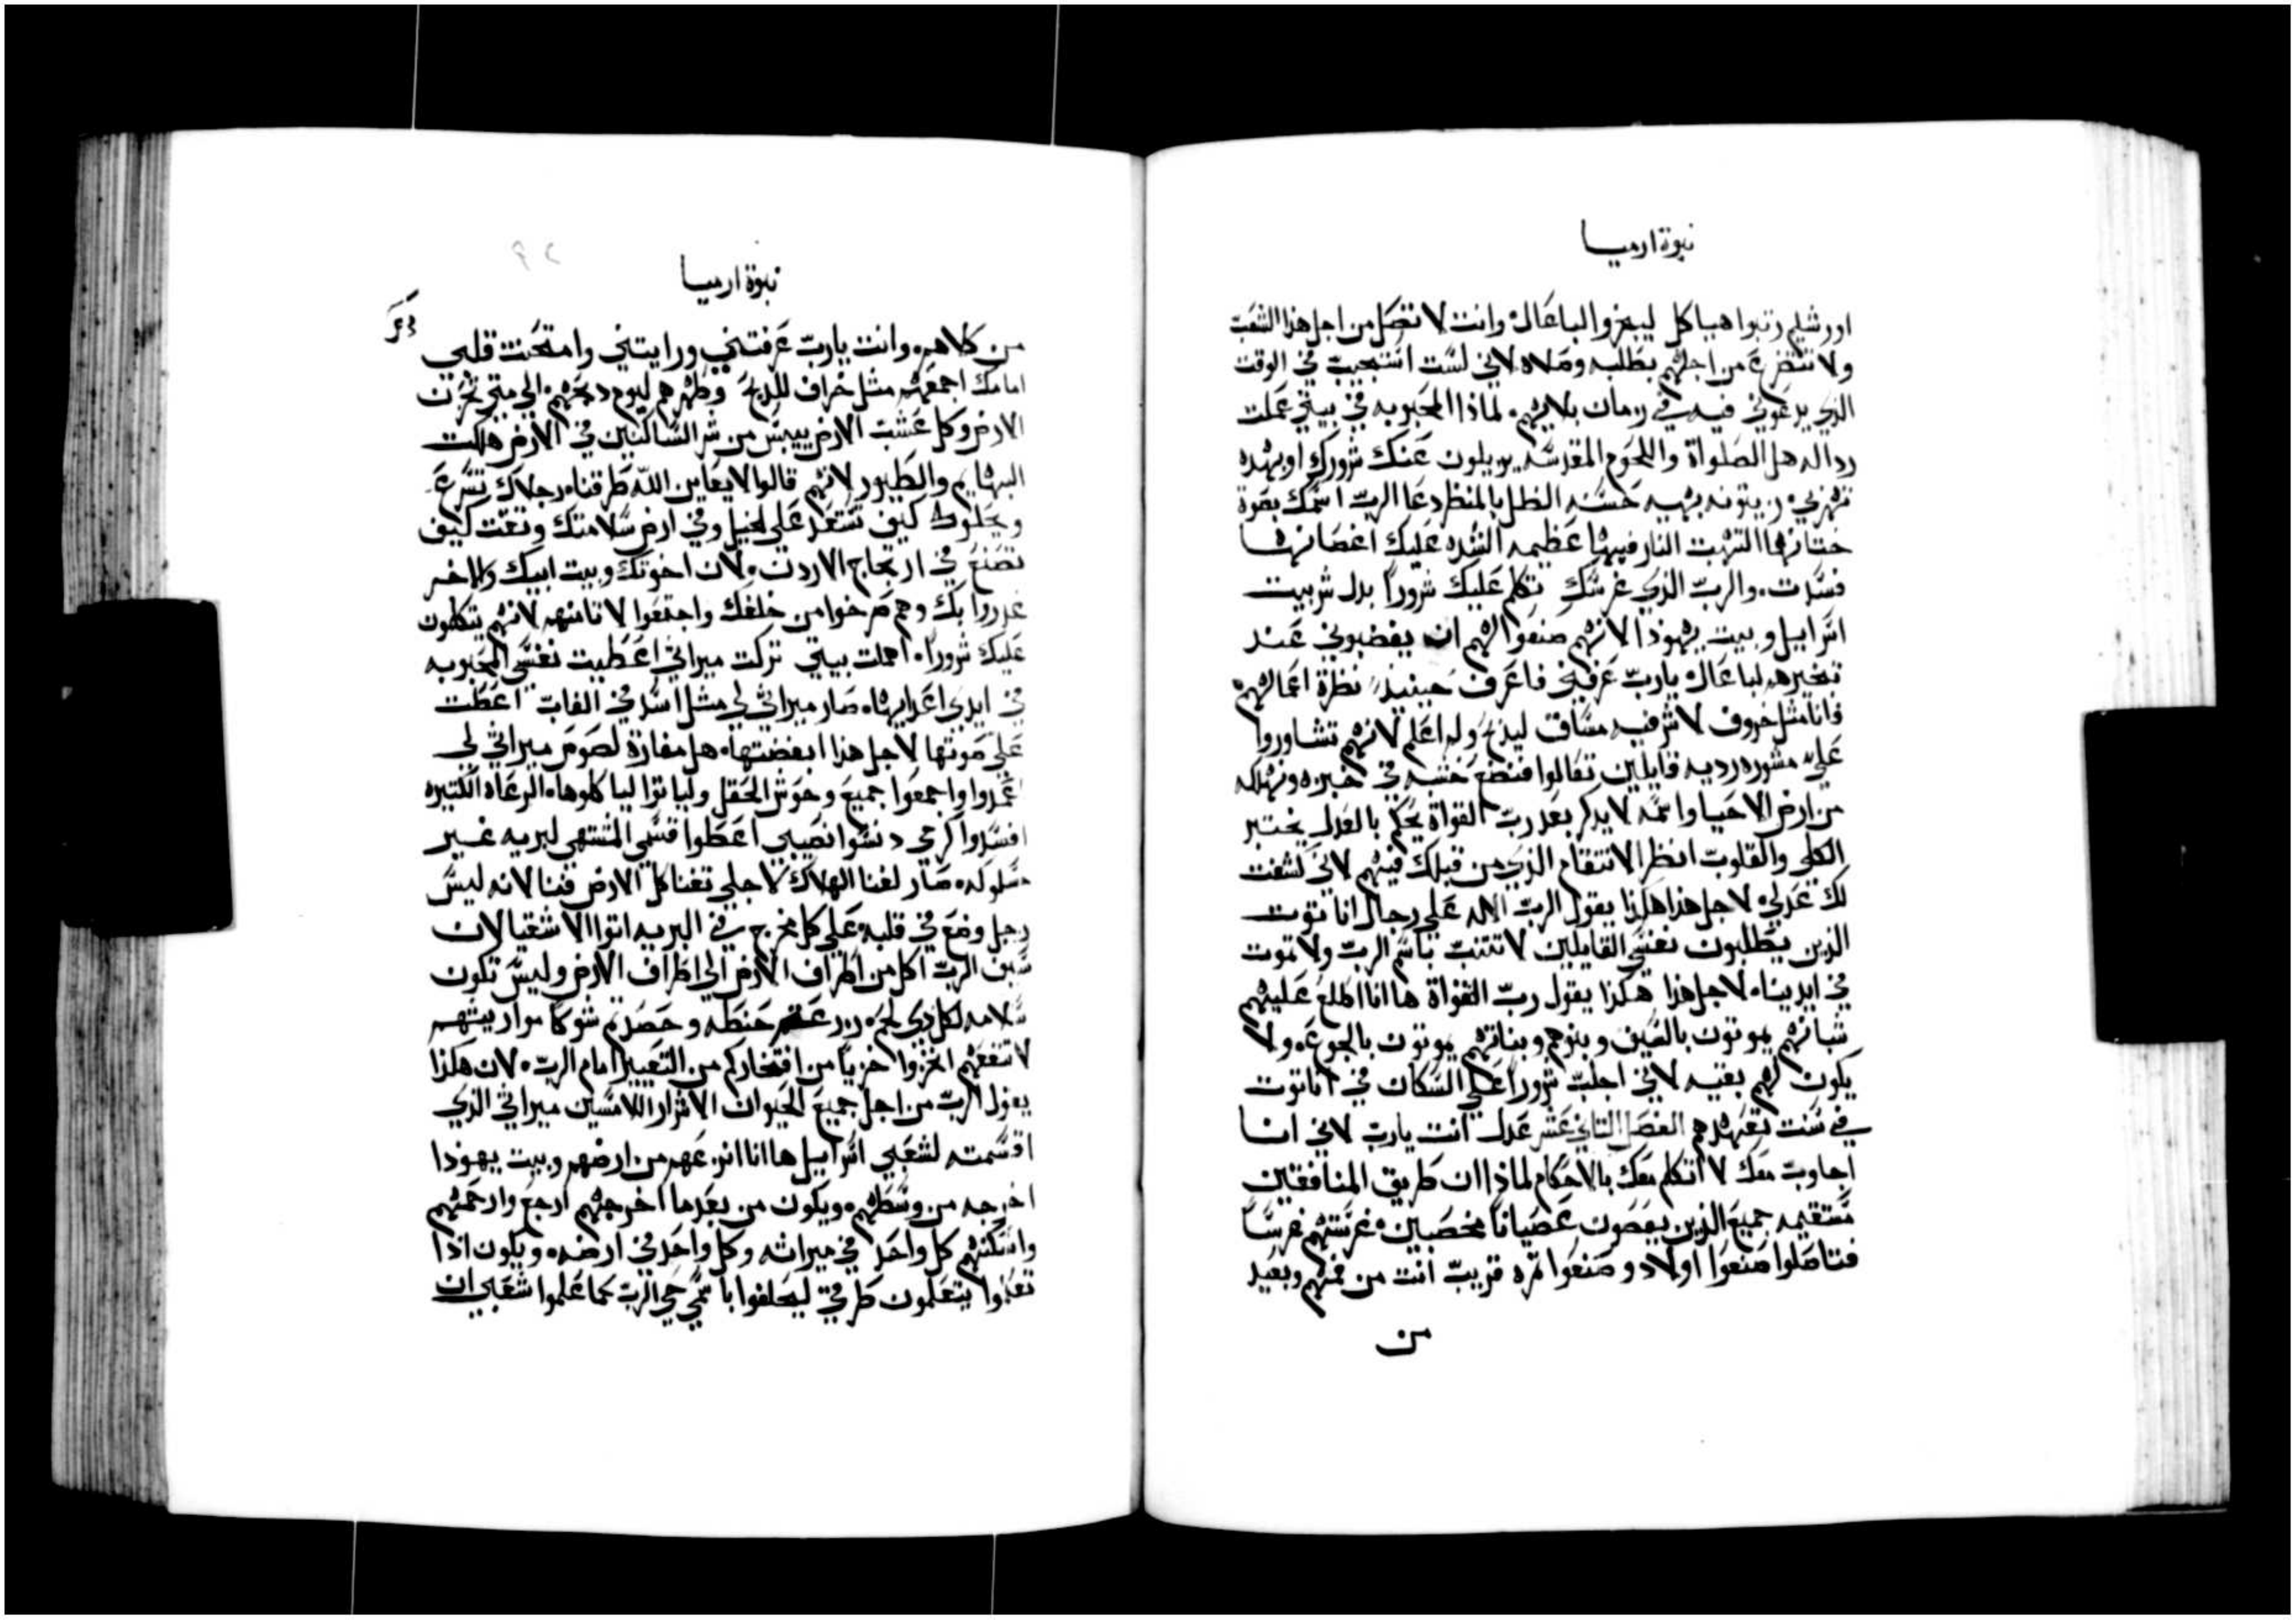 نبوة ارميا
اورشليم رتبوا هياكل ليبخروا لباعال وانت لا تصل من اجل هذا الشعب
ولا تتضرع من اجلهم بطلبه وصلاه لاني لست استجيب في الوقت
الذي يدعوني فيه في زمان بلاهم لماذا المحبوبه في بيتي عملت
رداله هل الصلواة واللحوم المقدسه يزيلون عنك شرورك او بهذه
تهربي زيتونه بهيه حسنه الظل بالمنظر دعا الرب اسمك بصوة
ختانها التهبت النار فيها عظيمه الشده عليك اغصانها
فسدت والرب الذي غرسك تكلم عليك شرورا بدل شر بيت
اسراييل وبيت يهوذا لانهم صنعوا لهم ان يغضبوني عند
تبخيرهم لباعال يارب عرفني فاعرف حينيذ نظرة اعمالهم
فانا مثل خروف لا شر فيه مساق ليذبح ولم اعلم لانهم تشاوروا
علي مشوره رديه قايلين تعالوا فنضع خشبه في خبزه ونهلكه
من ارض الاحيا واسمه لا يذكر بعد رب القواة يحكم بالعدل يختبر
الكلي والقلوب انظر الانتقام الذي من قبلك فيهم لاني كشفت
لك عدلي لاجل هذا هكذا يقول الرب الاله علي رجال اناتوت
الذين يطلبون نفسي القايلين لا تتنب باسم الرب ولا تموت
في ايدينا لاجل هذا هكذا يقول رب القواة ها انا اطلع عليهم
شبانهم يموتون بالسيف وبنوهم وبناتهم يموتون بالجوع ولا
يكون لهم بقيه لاني اجلب شرورا علي السكان في اناتوت
في سنت تعهدهم الفصل التاني عشر عدل انت يارب لاني انا
اجاوب معك لا اتكلم معك بالاحكام لماذا ان طريق المنافقين
مستقيمه جميع الذين يعصون عصيانا مخصبين غرستهم غرسا
فتاصلوا صنعوا اولاد وصنعوا تمره قريب انت من فمهم وبعيد
من
نبوة ارميا
٩٢
من كلاهم وانت يارب عرفتني ورايتني وامتحنت قلبي
امامك اجمعهم مثل خراف للذبح وطهرهم ليوم دبحهم الي متي تحزن
الارض وكل عشب الارض ييبس من شر الساكنين في الارض هلكت
البهايم والطيور لانهم قالوا لا يعاين الله طرقنا رجلاك تسرع
ويحلوك كيف تستعد علي الخيل وفي ارض سلامتك وتقت كيف
تصنع في ارتجاج الاردن لان اخوتك وبيت ابيك والاخر
غدروا بك وهم صرخوا من خلفك واجتمعوا لا تامنهم لانهم يتكلمون
عليك شرورا اهملت بيتي تركت ميراتي اعطيت نفسي المحبوبه
في ايدي اعدايها صار ميراتي لي مثل اسد في الغاب اعطت
علي صوتها لاجل هذا ابغضتها هل مغارة لصوص ميراتي لي
اعمدوا واجمعوا جميع وحوش الحقل ولياتوا لياكلوها الرعاه الكتيره
افسدوا كرمي دنسوا نصيبي اعطوا قسمي المشتهي لبريه غير
مسلوكه صار لفنا الهلاك لاجلي تفنا كل الارض فنا لانه ليس
رجل وضع في قلبه علي كل مخرج في البريه اتوا الاشقيا لان
سيف الرب اكل من اطراف الارض الي اطراف الارض وليس تكون
سلامه لكل ذي لحم حنطه وحصدتم شوكا مواريتهم
لا تنفعهم اخزوا خزيا من افتخاركم من التعيير امام الرب لان هكذا
يقول الرب من اجل جميع الحيوان الاشرار اللامسين ميراتي الذي
اقسمته لشعبي اسراييل ها انا انزعهم من ارضهم وبيت يهوذا
اخرجه من وسطهم ويكون من بعد ما اخرجهم ارجع وارحمهم
واسكنهم كل واحد في ميراثه وكل واحد في ارضه ويكون اذا
تعلموا يتعلمون طرقي ليحلفوا باسمي حي الرب كما علموا شعبي ان